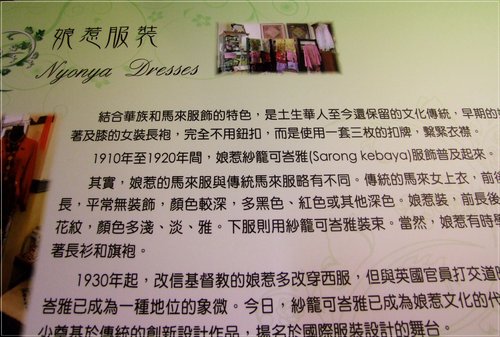 娘惹服裝
Nyonya Dresses
結合華族和馬來服飾的特色，是土生華人至今還保留的文化傳統，早期的
著及膝的女裝長袍，完全不用鈕扣，而是使用一套三枚的扣牌，繫緊衣襟。
1910年至1920年間，娘惹紗籠可峇雅(Sarong kebaya)服飾普及起來。
其實，娘惹的馬來服與傳統馬來服略有不同。傳統的馬來女上衣，前後
長，平常無裝飾，顏色較深，多黑色、紅色或其他深色。娘惹裝，前長後
花紋，顏色多淺、淡、雅。下服則用紗籠可峇雅裝束。當然，娘惹有時
著長衫和旗袍。
1930年起，改信基督教的娘惹多改穿西服，但與英國官員打交道
峇雅已成為一種地位的象微。今日，紗籠可峇雅已成為娘惹文化的代
少尊基於傳統的創新設計作品，揚名於國際服裝設計的舞台。